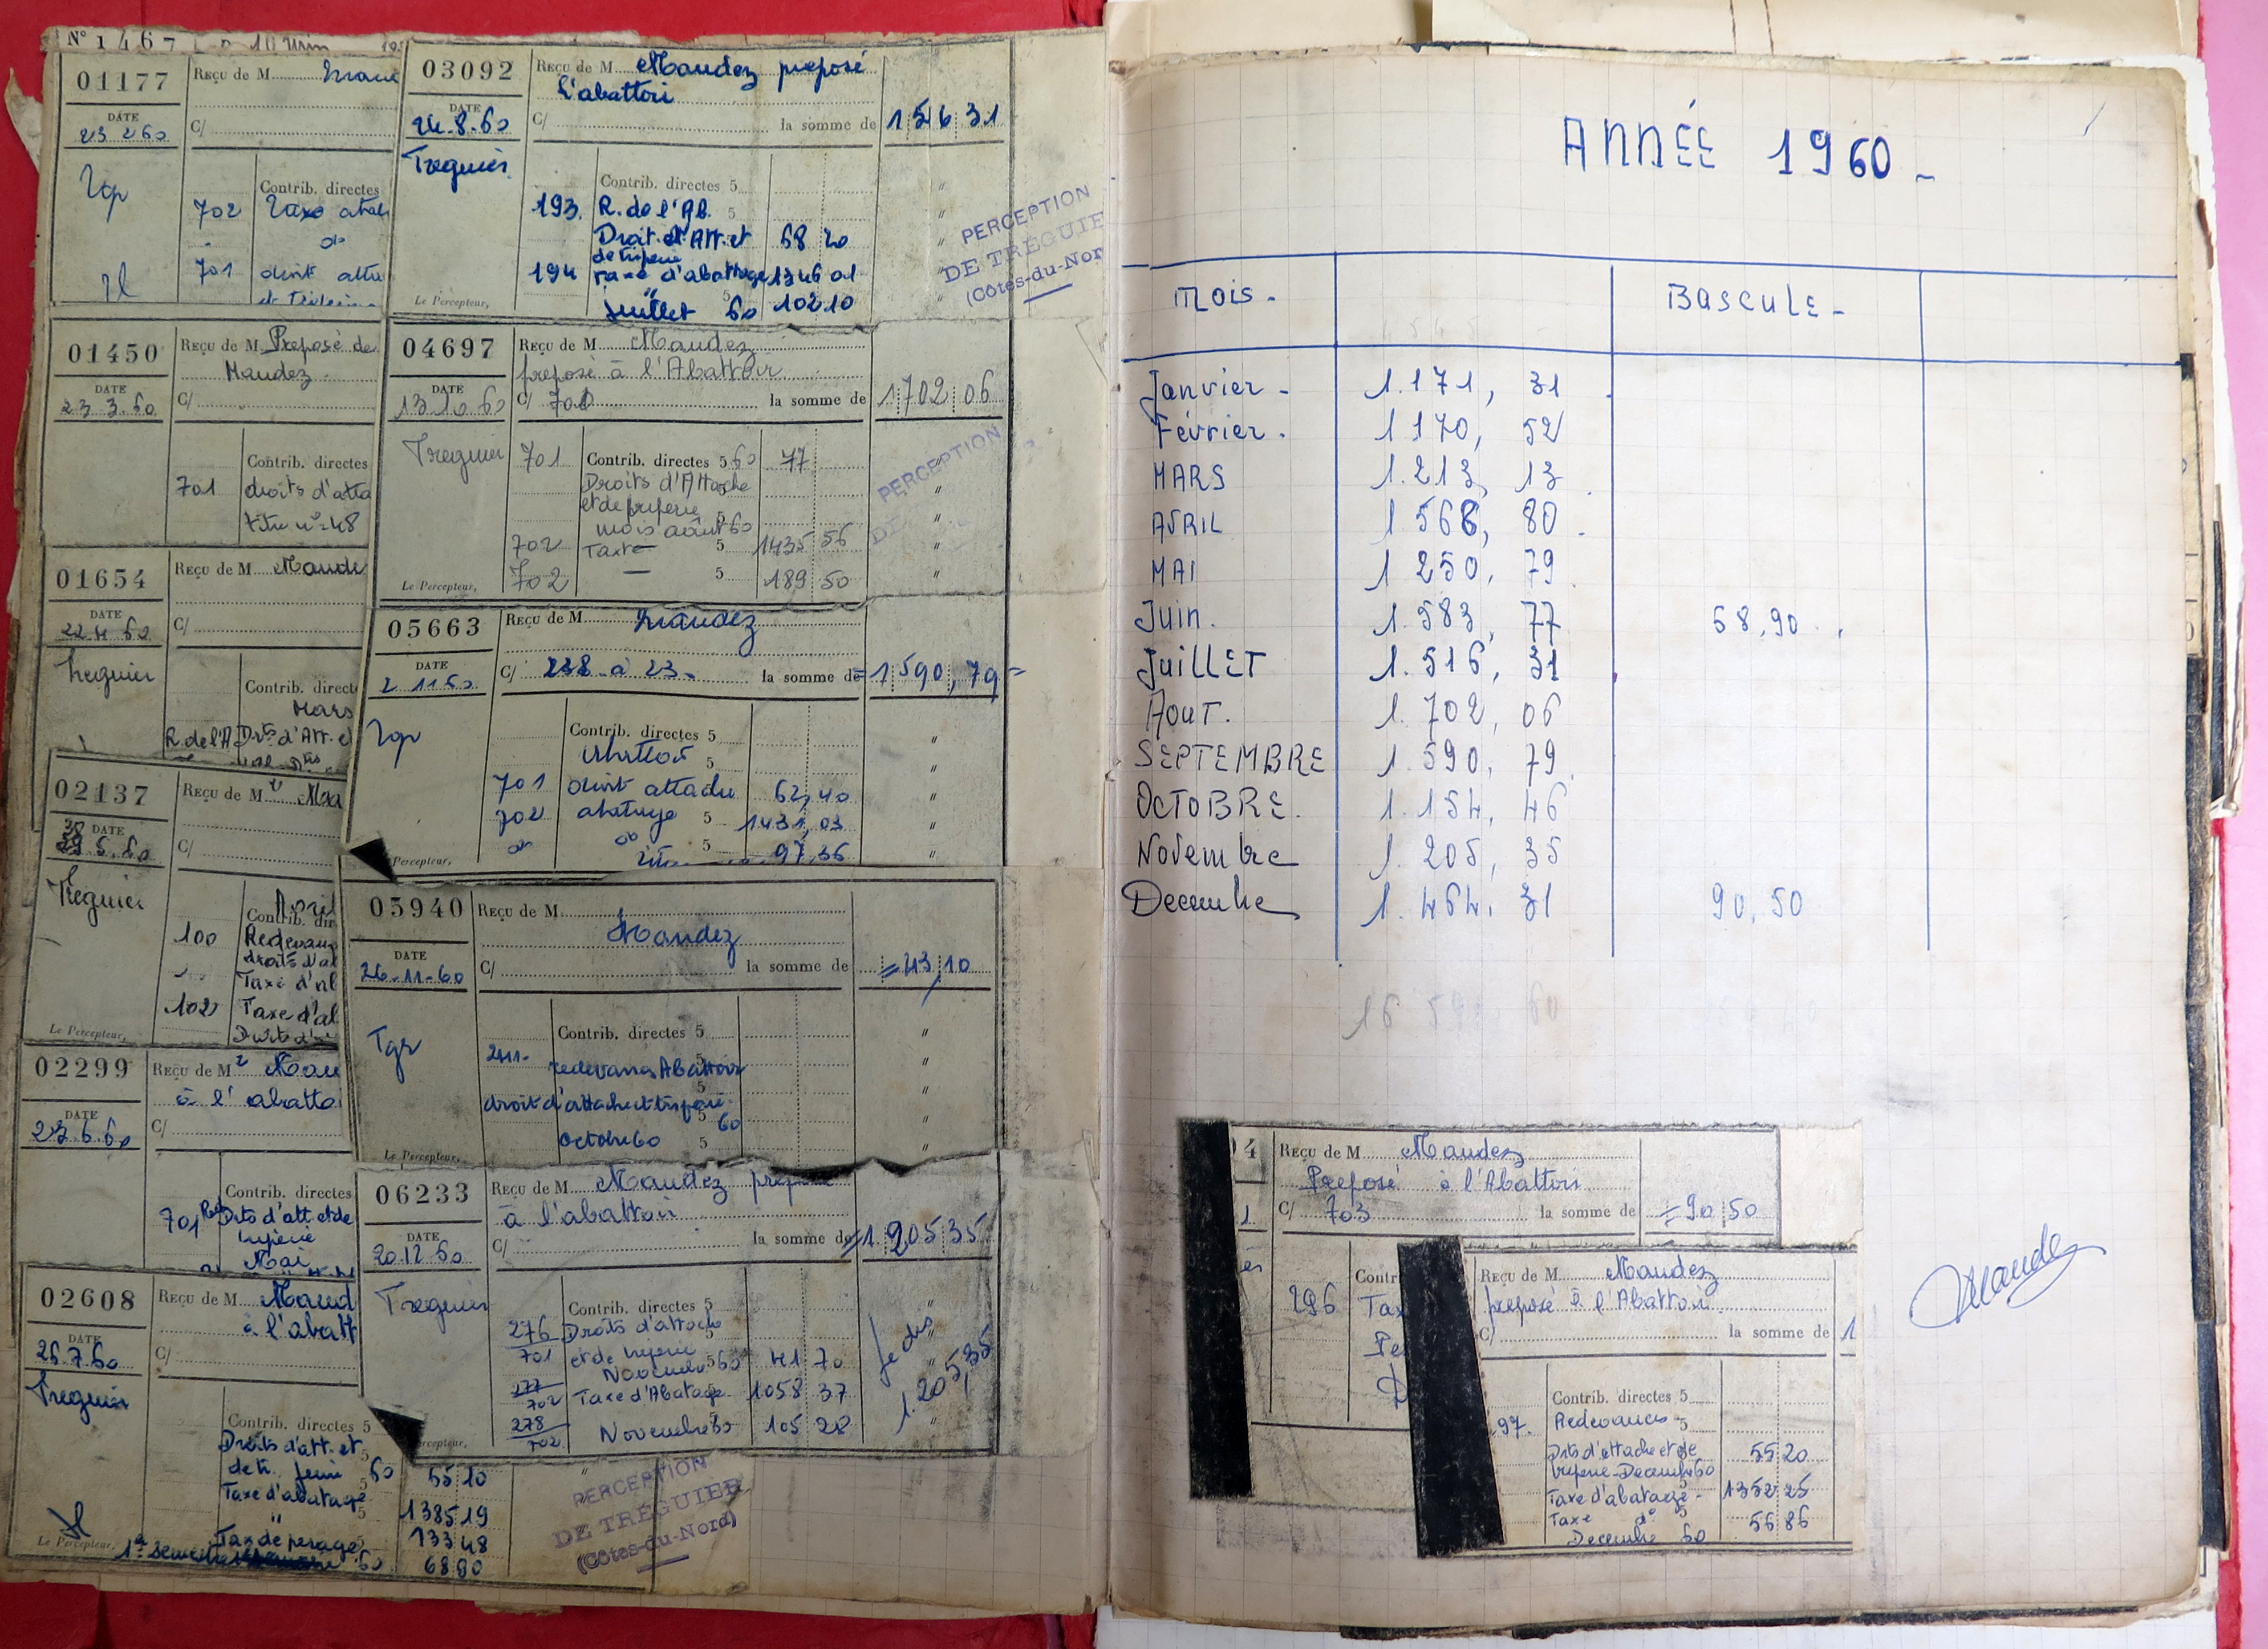 N° 1467
01177
DATE
23 2 60
Reçu de M
C/
Contrib. directes
702
701
01450
DATE
23.3.60
Reçu de M Préposé de
Maudez
C/
Contrib. directes
701 droits d'atta
titre n° 48
01654
DATE
22 4 60
Reçu de M Maude
C/
Treguier
Contrib. direct
Mars
R. de l'A Drts d'Att. e
02137
DATE
Reçu de M Mau
C/
Treguier
Avril
Contrib. dir
100 Redevan
droits d'at
Taxe d'al
102 Taxe d'al
Le Percepteur,
02299
DATE
23.6.60
Reçu de M Mau
à l'abatto
C/
Contrib. directes
701 Drts d'att. et de
Mai
02608
DATE
26.7.60
Reçu de M Maud
à l'abatt
C/
Treguier
Contrib. directes 5
Droits d'att. et
de tr. juin 60 55 10
Taxe d'abatage 1385 19
" 133 48
Tax de pesage 68 90
1er semestre 60
Le Percepteur,
PERCEPTION
DE TRÉGUIER
(Côtes-du-Nord)
03092
DATE
24.8.60
Treguier
Reçu de M Maudez préposé
L'abattoir
C/ la somme de 1516 31
Contrib. directes 5
193. R. de l'Ab. 5
Droit d'Att. et 68 20
de triperie
194 Taxe d'abattage 1346 01
Juillet 60 102 10
Le Percepteur,
PERCEPTION
DE TRÉGUIE
(Côtes-du-Nor
04697
DATE
13 10 60
Treguier
Reçu de M Maudez
préposé à l'Abattoir
C/ 701 la somme de 1702 06
701 Contrib. directes 5 60 77
Droits d'Attache
et de triperie 5
mois août 60
702 Taxe 5 1435 56
702 — 5 189 50
Le Percepteur,
PERCEPTION
05663
DATE
2 11 60
Reçu de M Maudez
C/ 238 à 23 la somme de = 1 590,79 -
Contrib. directes 5
701 droit attache 62,40
702 abatage 5 1431,03
do do 5 97,36
Percepteur,
05940
DATE
26-11-60
Reçu de M
Maudez
C/ la somme de = 43,10
Tgr
Contrib. directes 5
redevances Abattoir
droit d'attache et triperie
60
Octobre 60 5
Le Percepteur,
06233
DATE
20.12.60
Treguier
Reçu de M Maudez prépo
à l'abattoir
C/ la somme de = 1 205 35
Contrib. directes 5
276 Droits d'attache
701 et de triperie
Novembre 60 41 70
277
702 Taxe d'Abatage 1058 37
278
702 Novembre 60 105 28
je dis
1.205,35
ANNÉE 1960 -
Mois - BASCULE -
Janvier - 1.171, 31
Février. 1 170, 52
MARS 1.213, 13
AVRIL 1 568, 80
MAI 1 250, 79
Juin. 1.583, 77 68,90
JuiLLET 1.516, 31
Aout. 1. 702, 06
SEPTEMBRE 1 590, 79
OCTOBRE. 1.154, 46
Novembre 1. 205, 35
Decembre 1. 464, 31 90,50
Reçu de M Maudez
Préposé à l'Abattoir
C/ 703 la somme de = 90 50
Contr
296 Tax
Pe
Reçu de M Maudez
préposé à l'Abattoir
C/ la somme de 1
Contrib. directes 5
97. Redevances 5
Drts d'attache et de 55 20
triperie - Decembre 60
Taxe d'abatage - 1352 25
Taxe do 5 56 86
Decembre 60
Maudez